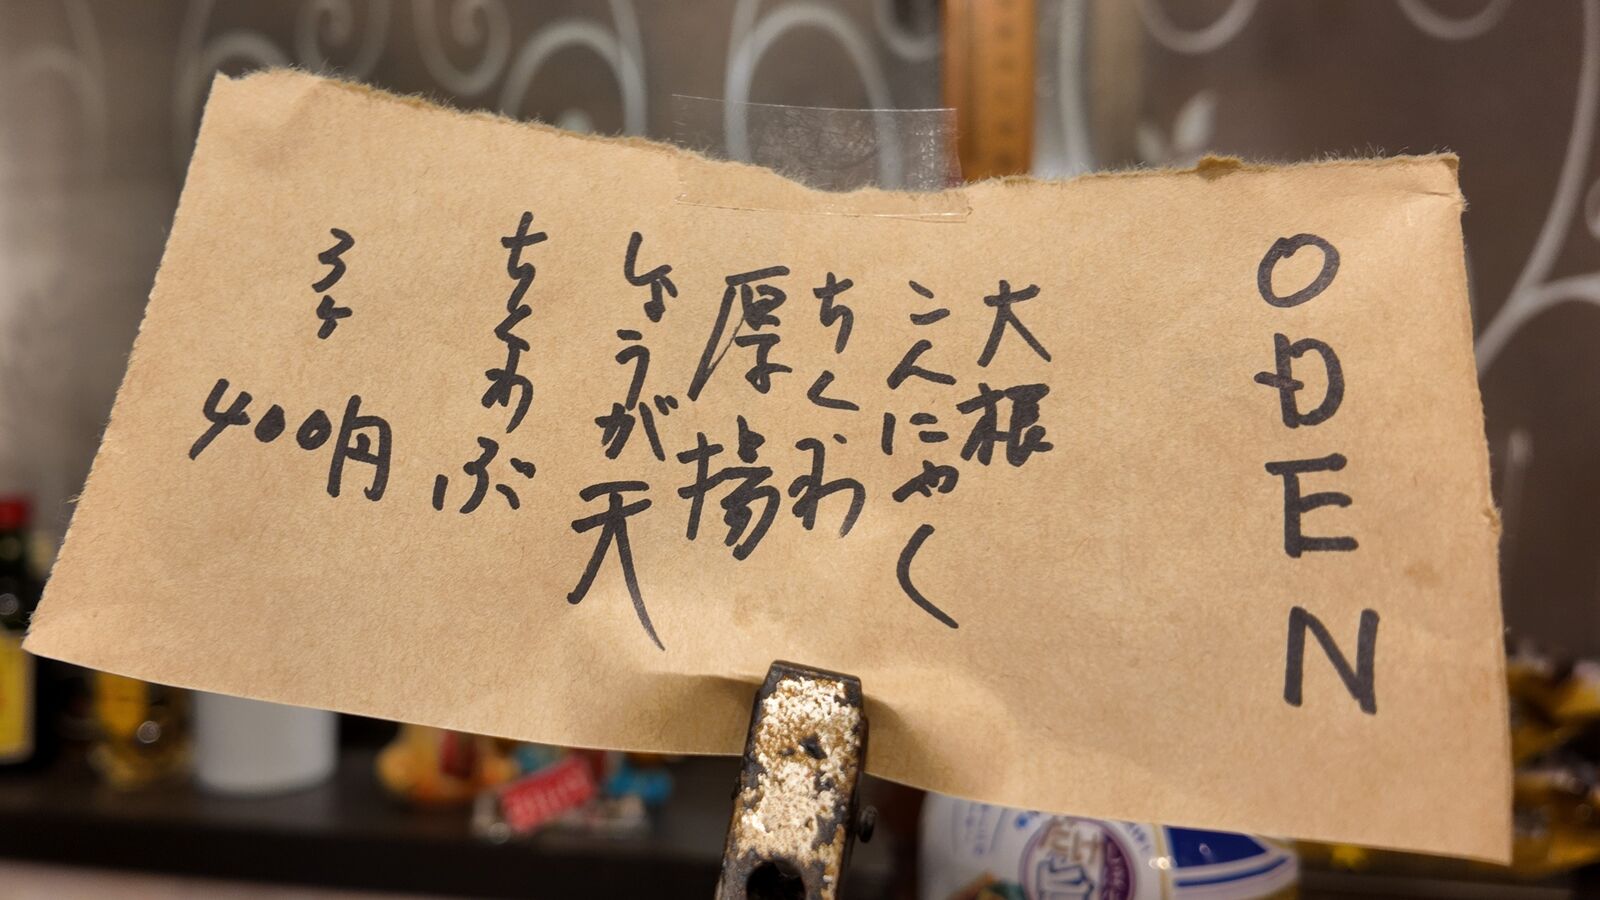 ODEN
大根
こんにゃく
ちくわ
厚揚
しょうが天
ちくわぶ
3ヶ
400円